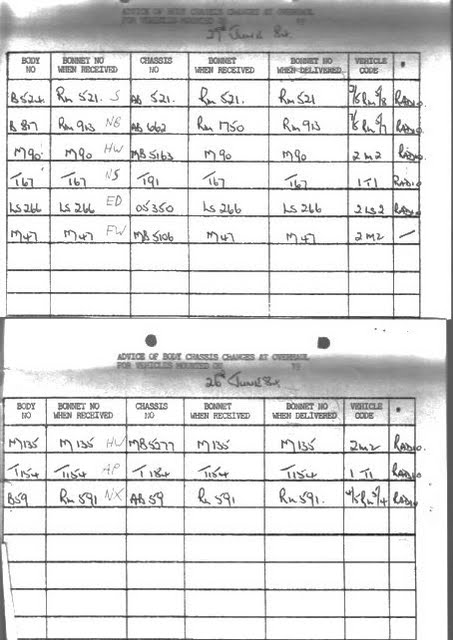 ADVICE OF BODY CHASSIS CHANGES AT OVERHAUL
FOR VEHICLES MOUNTED ON
29th June 84.
BODY NO | BONNET NO WHEN RECEIVED | CHASSIS NO | BONNET WHEN RECEIVED | BONNET NO WHEN DELIVERED | VEHICLE CODE | *
B524 | RM 521. S | AB 521. | RM 521. | RM 521 | 2/5 RM 5/8 | RADIO.
B 817 | RM 913 NB | AB 662 | RM 1750 | RM 913 | RM | RADIO.
M90 | M90 HW | MB5163 | M90 | M90 | 2 M2 | RADIO.
T67 | T67 NS | T91 | T67 | T67 | 1 T1 | RADIO
LS266 | LS 266 ED | OS350 | LS 266 | LS 266 | 2 LS 2 | RADIO.
M47 | M47 FW | MB5106 | M47 | M47 | 2 M2 | —
ADVICE OF BODY CHASSIS CHANGES AT OVERHAUL
FOR VEHICLES MOUNTED ON
26th June 84.
BODY NO | BONNET NO WHEN RECEIVED | CHASSIS NO | BONNET WHEN RECEIVED | BONNET NO WHEN DELIVERED | VEHICLE CODE | *
M135 | M 135 HW | MB5577 | M135 | M135 | 2M2 | RADIO.
T154 | T154 AP | T184 | T154 | T154 | 1 T1 | RADIO.
B59 | RM 591 NX | AB 59 | RM 591 | RM 591. | 4/5 RM 5/4 | RADIO